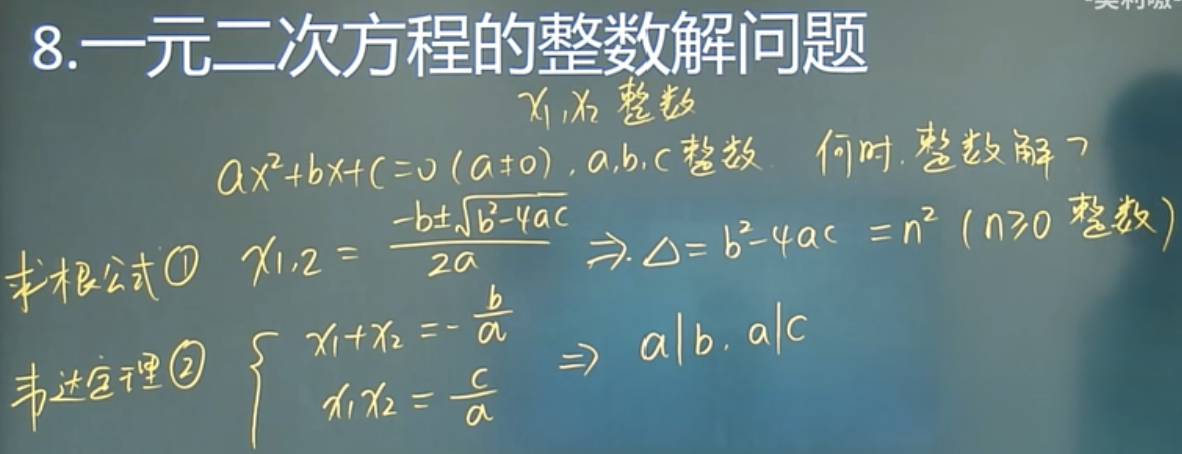 8.一元二次方程的整数解问题
x₁,x₂ 整数
ax²+bx+c=0 (a≠0), a,b,c 整数. 何时.整数解?
求根公式① x₁,₂ = \frac{-b±\sqrt{b²-4ac}}{2a} ⇒. Δ= b²-4ac = n² (n≥0 整数)
韦达定理② { x₁+x₂ = -\frac{b}{a} ⇒ a|b, a|c
x₁x₂ = \frac{c}{a}